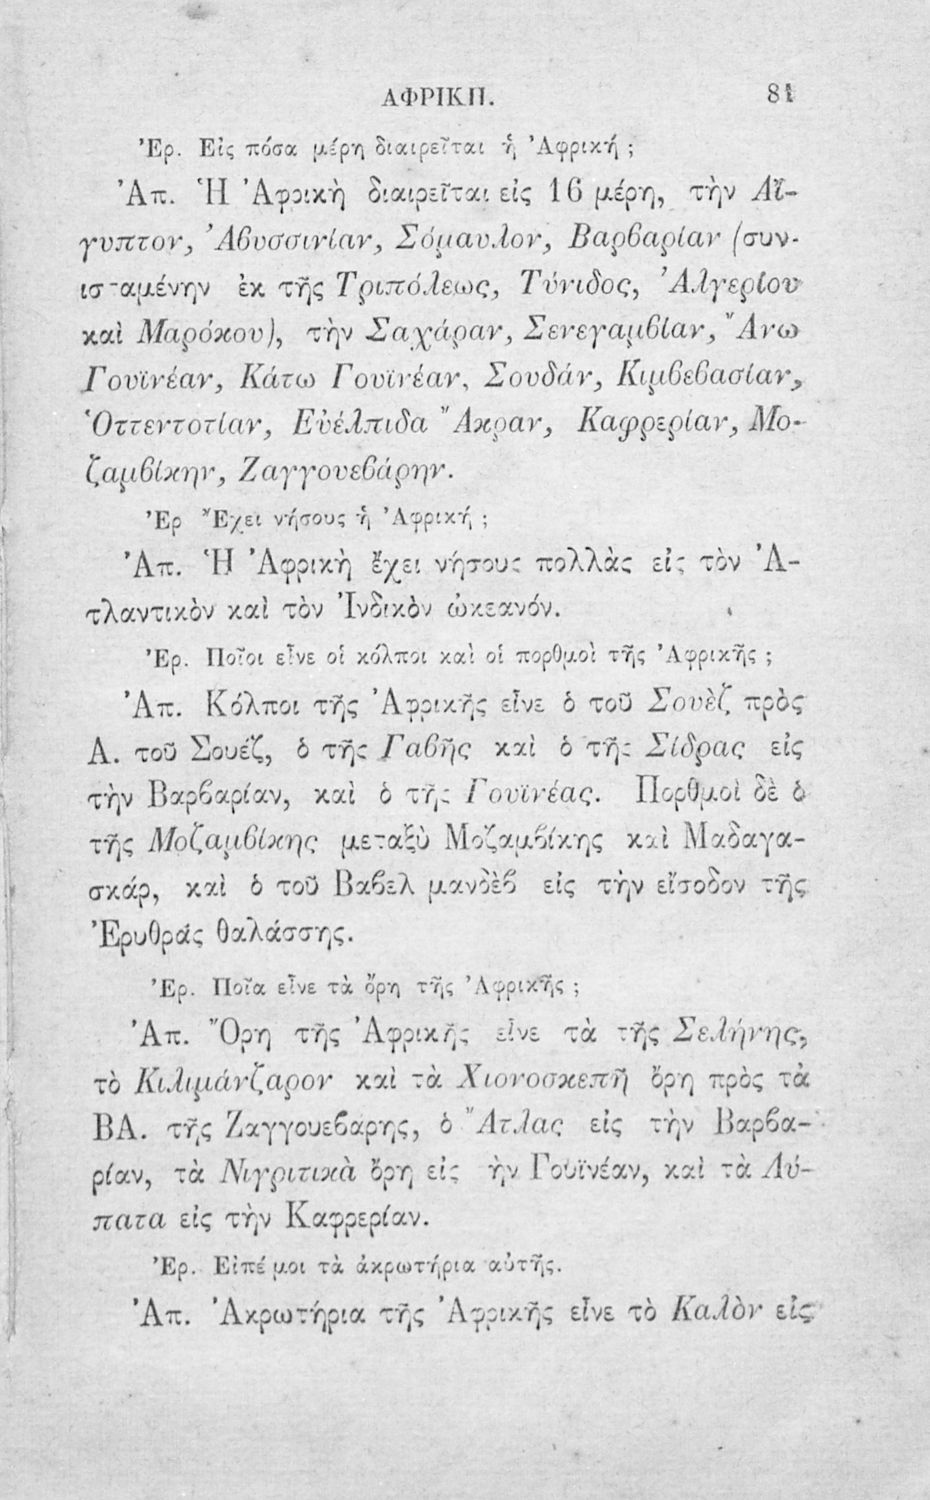 ΑΦΡΙΚΗ. 81
Ἐρ. Εἰς πόσα μέρη διαιρεῖται ἡ Ἀφρική ;
Ἀπ. Ἡ Ἀφρικὴ διαιρεῖται εἰς 16 μέρη, τὴν Αἴ-
γυπτον, Ἀβυσσινίαν, Σόμαυλον, Βαρβαρίαν (συν-
ισταμένην ἐκ τῆς Τριπόλεως, Τύνιδος, Ἀλγερίου
καὶ Μαρόκου), τὴν Σαχάραν, Σενεγαμβίαν, Ἄνω
Γουϊνέαν, Κάτω Γουϊνέαν, Σουδάν, Κιμβεβασίαν,
Ὁττεντοτίαν, Εὐέλπιδα Ἄκραν, Καφρερίαν, Μο-
ζαμβίκην, Ζαγγουεβάρην.
Ἐρ Ἔχει νήσους ἡ Ἀφρική ;
Ἀπ. Ἡ Ἀφρικὴ ἔχει νήσους πολλὰς εἰς τὸν Ἀ-
τλαντικὸν καὶ τὸν Ἰνδικὸν ὠκεανόν.
Ἐρ. Ποῖοι εἶνε οἱ κόλποι καὶ οἱ πορθμοὶ τῆς Ἀφρικῆς ;
Ἀπ. Κόλποι τῆς Ἀφρικῆς εἶνε ὁ τοῦ Σουὲζ πρὸς
Α. τοῦ Σουέζ, ὁ τῆς Γαβῆς καὶ ὁ τῆς Σίδρας εἰς
τὴν Βαρβαρίαν, καὶ ὁ τῆς Γουϊνέας. Πορθμοὶ δὲ ὁ
τῆς Μοζαμβίκης μεταξὺ Μοζαμβίκης καὶ Μαδαγα-
σκάρ, καὶ ὁ τοῦ Βαβελ μανδὲβ εἰς τὴν εἴσοδον τῆς
Ἐρυθρᾶς θαλάσσης.
Ἐρ. Ποῖα εἶνε τὰ ὄρη τῆς Ἀφρικῆς ;
Ἀπ. Ὄρη τῆς Ἀφρικῆς εἶνε τὰ τῆς Σελήνης,
τὸ Κιλιμάνζαρον καὶ τὰ Χιονοσκεπῆ ὄρη πρὸς τὰ
ΒΑ. τῆς Ζαγγουεβάρης, ὁ Ἄτλας εἰς τὴν Βαρβα-
ρίαν, τὰ Νιγριτικὰ ὄρη εἰς τὴν Γουϊνέαν, καὶ τὰ Λύ-
πατα εἰς τὴν Καφρερίαν.
Ἐρ. Εἰπέ μοι τὰ ἀκρωτήρια αὐτῆς.
Ἀπ. Ἀκρωτήρια τῆς Ἀφρικῆς εἶνε τὸ Καλὸν εἰς